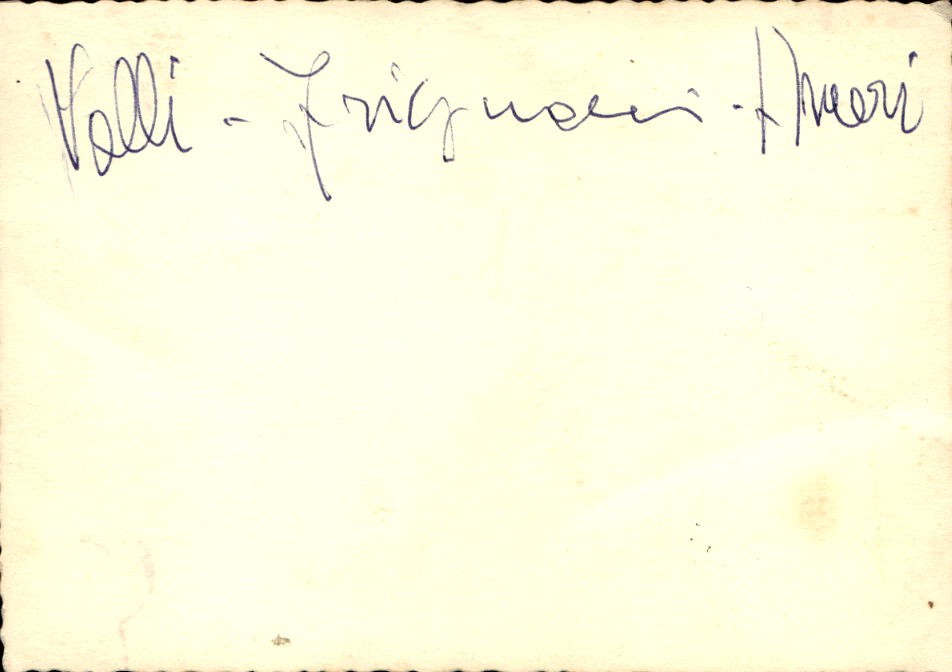 Valli - Frignani - Amari